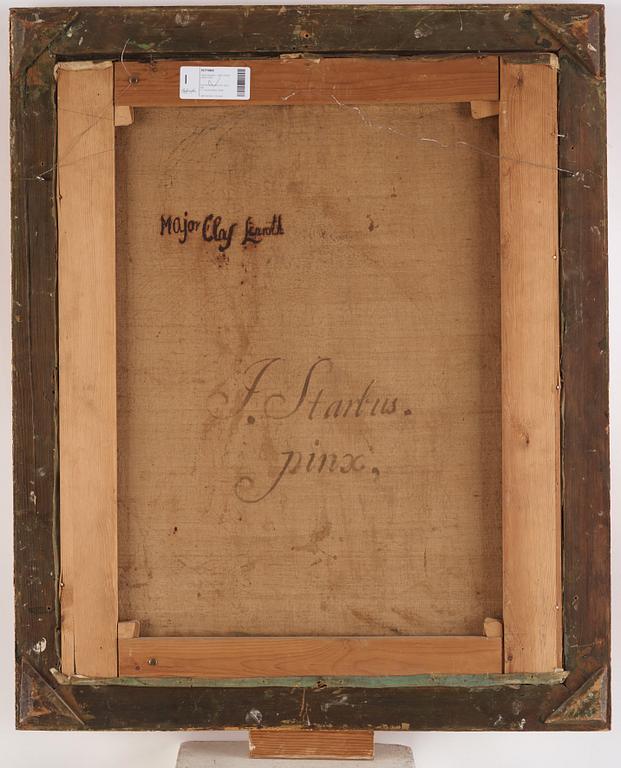 Major Claſ Lenroth
J. Starbus.
pinx,